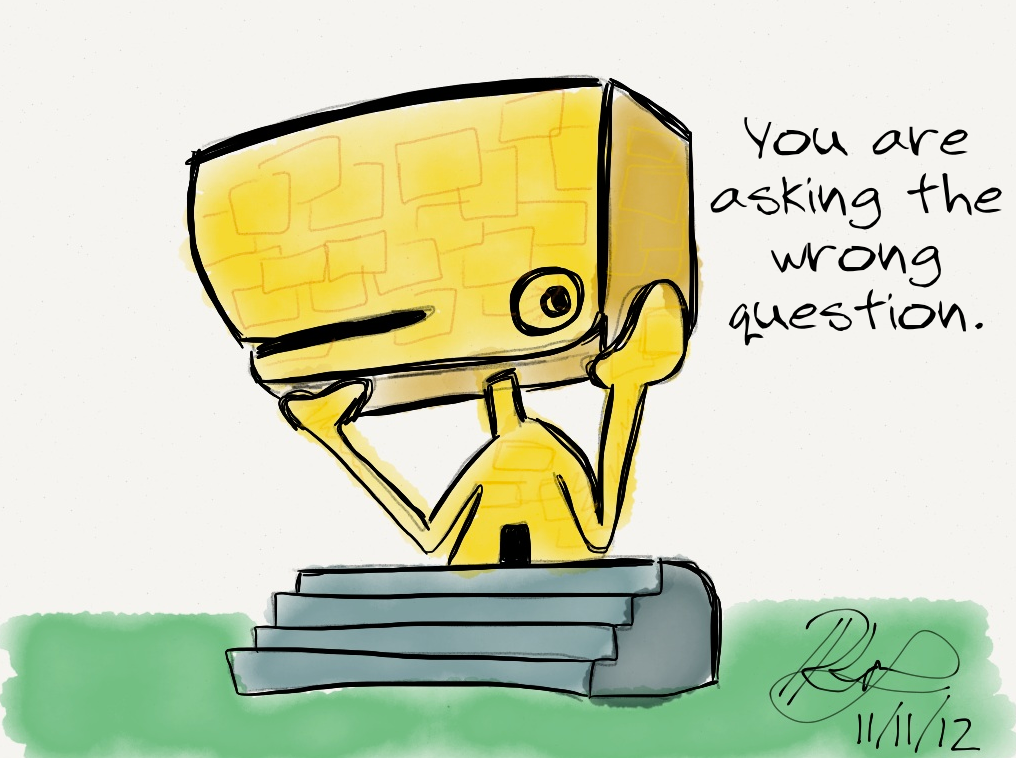 You are
asking the
wrong
question.
11/11/12